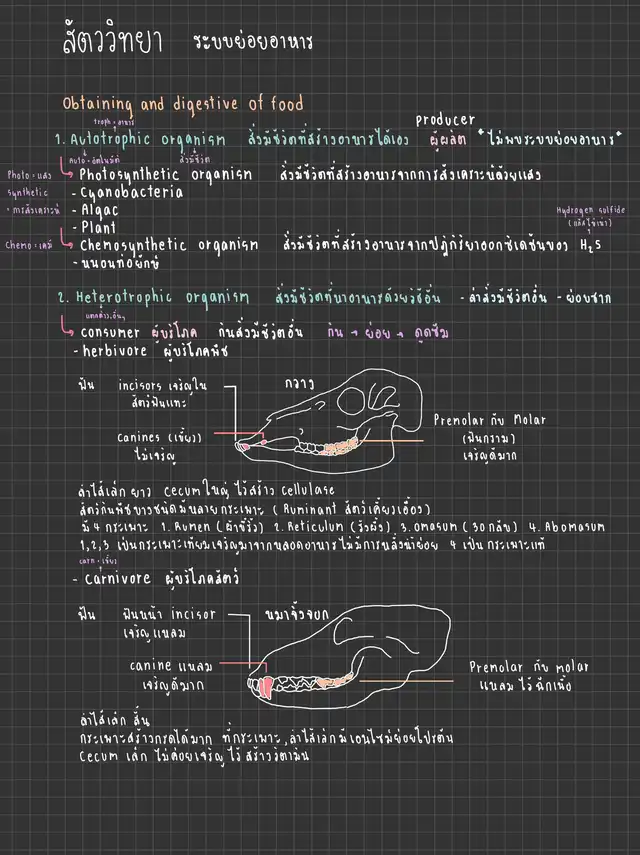 สัตววิทยา ระบบย่อยอาหาร
Obtaining and digestive of food
troph = อาหาร
producer
1. Autotrophic organism สิ่งมีชีวิตที่สร้างอาหารได้เอง ผู้ผลิต *ไม่พบระบบย่อยอาหาร*
Auto = อัตโนมัติ สิ่งมีชีวิต
Photo = แสง
Photosynthetic organism สิ่งมีชีวิตที่สร้างอาหารจากการสังเคราะห์ด้วยแสง
synthetic
- Cyanobacteria
= การสังเคราะห์
- Algac
- Plant
Hydrogen sulfide
(แก๊สไข่เน่า)
Chemo = เคมี
Chemosynthetic organism สิ่งมีชีวิตที่สร้างอาหารจากปฏิกิริยาออกซิเดชันของ H₂S
- หนอนท่อยักษ์
2. Heterotrophic organism สิ่งมีชีวิตที่หาอาหารด้วยวิธีอื่น - ล่าสิ่งมีชีวิตอื่น - ย่อยซาก
แตกต่าง, อื่นๆ
consumer ผู้บริโภค กินสิ่งมีชีวิตอื่น กิน → ย่อย → ดูดซึม
- herbivore ผู้บริโภคพืช
ฟัน incisors เจริญใน
สัตว์ฟันแทะ
กวาง
canines (เขี้ยว)
ไม่เจริญ
Premolar กับ Molar
(ฟันกราม)
เจริญดีมาก
ลำไส้เล็ก ยาว cecum ใหญ่ ไว้สร้าง cellulase
สัตว์กินพืชบางชนิดมีหลายกระเพาะ (Ruminant สัตว์เคี้ยวเอื้อง)
มี 4 กระเพาะ 1. Rumen (ผ้าขี้ริ้ว) 2. Reticulum (รังผึ้ง) 3. omasum (30 กลีบ) 4. Abomasum
1,2,3 เป็นกระเพาะเทียมเจริญมาจากหลอดอาหาร ไม่มีการหลั่งน้ำย่อย 4 เป็นกระเพาะแท้
carn = เนื้อ
- Carnivore ผู้บริโภคสัตว์
ฟัน ฟันหน้า incisor
เจริญแหลม
หมาจิ้งจอก
canine แหลม
เจริญดีมาก
Premolar กับ molar
แหลม ไว้ฉีกเนื้อ
ลำไส้เล็ก สั้น
กระเพาะสร้างกรดได้มาก ที่กระเพาะ, ลำไส้เล็กมีเอนไซม์ย่อยโปรตีน
Cecum เล็ก ไม่ค่อยเจริญ ไว้ สร้างวิตามิน